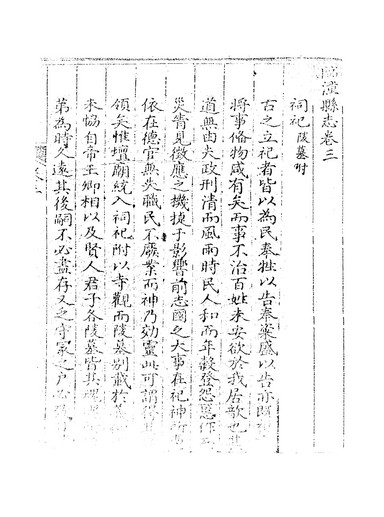 縣志卷三
祠祀 陵墓附
古之立祀者皆以為民奉牲以告奉粢盛以告亦既
將事俻物咸有矣而事不治百姓未安欲於我居歆也其
道無由夫政刑清而風雨時民人和而年穀登怨慝作
災眚見徴應之機捷于影響前志國之大事在祀神所
依在德官無失職民不廢業而神乃効靈此可謂得其
領矣惟壇廟統入祠祀附以寺觀而陵墓别載於
未協自帝王卿相以及賢人君子各陵墓皆其魂
第為時久遠其後嗣不必盡存又乏守冢之户